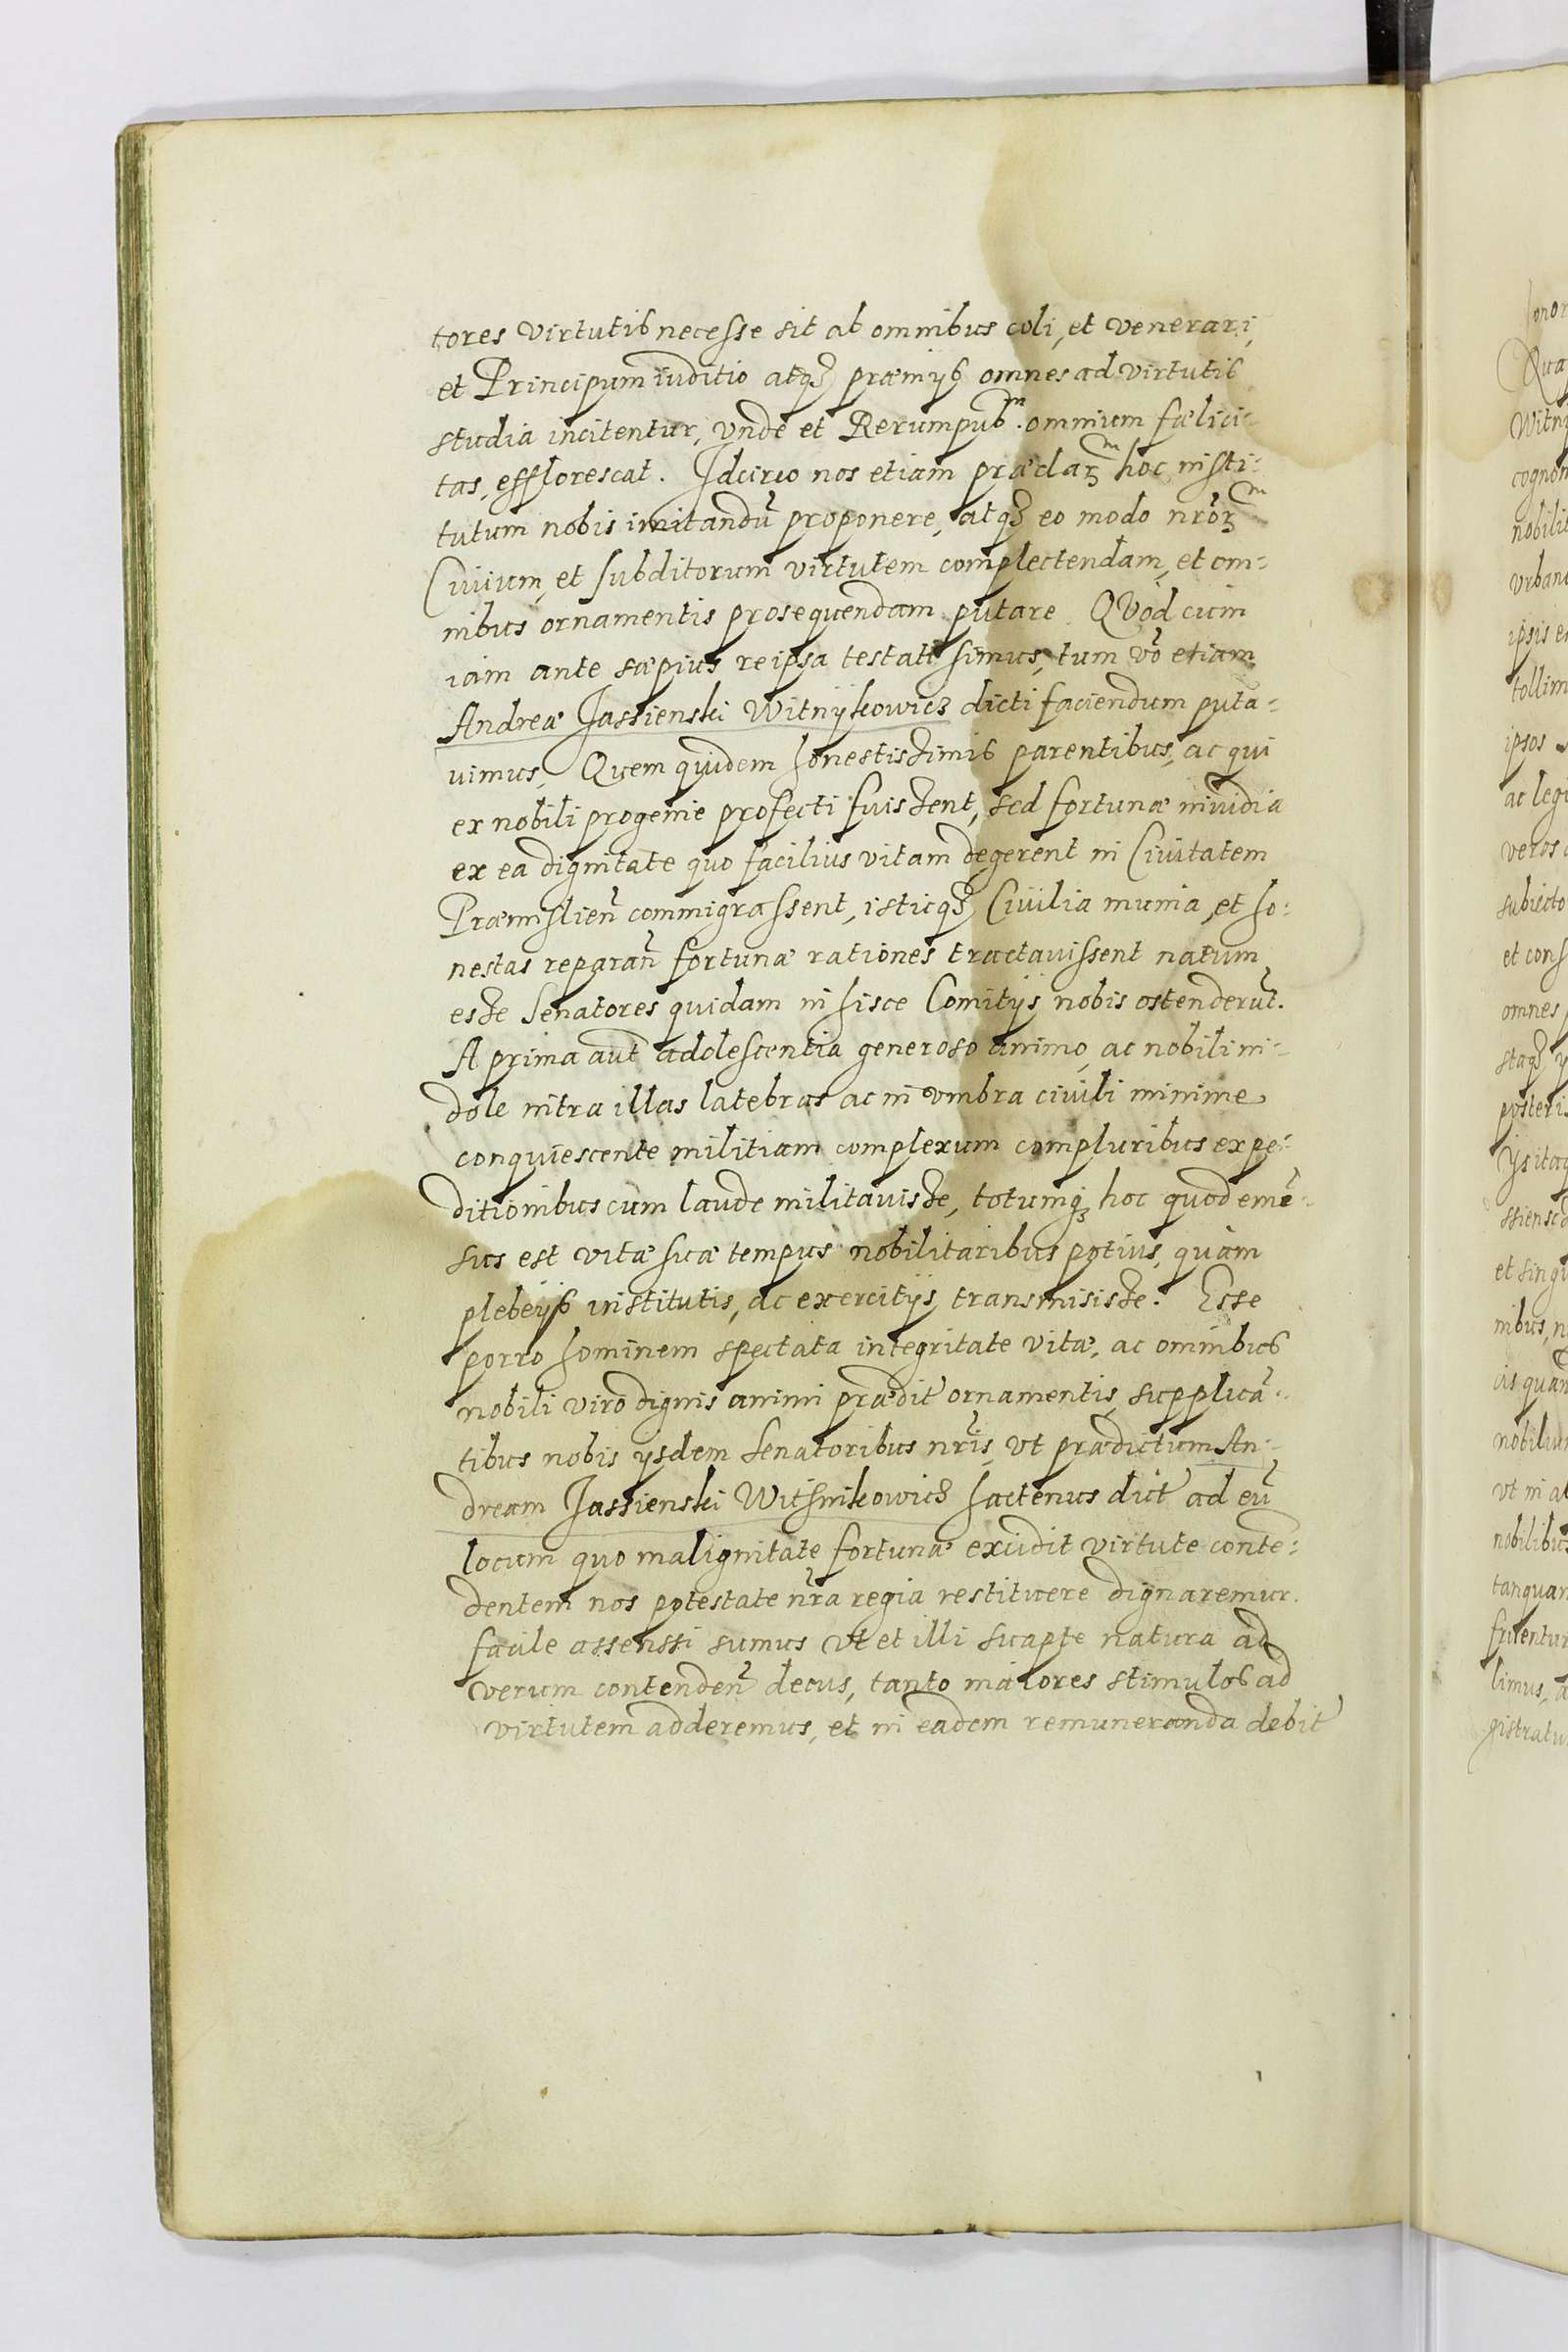 tores virtutis necesse sit ab omnibus coli, et venerari,
et Principum iuditio atq₃ præmijs omnes ad virtutis
studia incitentur, vnde et Rerumpub.m omnium fœlici-
tas, efflorescat. Idcirco nos etiam præclarm hoc insti-
tutum nobis imitandū proponere, atq₃ eo modo nrōrm
Ciuium, et subditorum virtutem complectendam, et om-
nibus ornamentis prosequendam putare. Quod cum
iam ante sæpius reipsa testati simus, tum vō etiam
Andreæ Jassienski Witnÿkowicz dicti faciendum puta-
uimus, Quem quidem honestissimis parentibus, ac qui
ex nobili progenie profecti fuissent, sed fortunæ inuidia
ex ea dignitate quo facilius vitam degerent in Ciuitatem
Præmislien̄ commigrassent, isticq₃ Ciuilia munia, et ho-
nestas reparan̄ fortunæ rationes tractauissent natum
esse Senatores quidam in hisce Comitÿs nobis ostenderūt.
A prima aut̄ adolescentia generoso animo, ac nobili in-
dole intra illas latebras ac in vmbra ciuili minime
conquiescente militiam complexum compluribus expe-
ditionibus cum laude militauisse, totumq₃ hoc quod emē-
sus est vitæ suæ tempus nobilitaribus potius, quàm
plebeÿs institutis, ac exercitÿs transmisisse. Esse
porro hominem spectata integritate vitæ, ac omnibus
nobili viro dignis animi prædit̄ ornamentis, supplicā-
tibus nobis ÿsdem Senatoribus nrīs, vt prædictum An-
dream Jassienski Withnikowicz hactenus dict̄ ad eū
locum quo malignitate fortunæ exúdit virtute conte-
dentem nos potestate nrā regia restituere dignaremur.
facile assenssi sumus vt et illi suapte natura ad
verum contenden̄ decus, tanto maiores stimulos ad
virtutem adderemus, et in eadem remuneranda debit̄